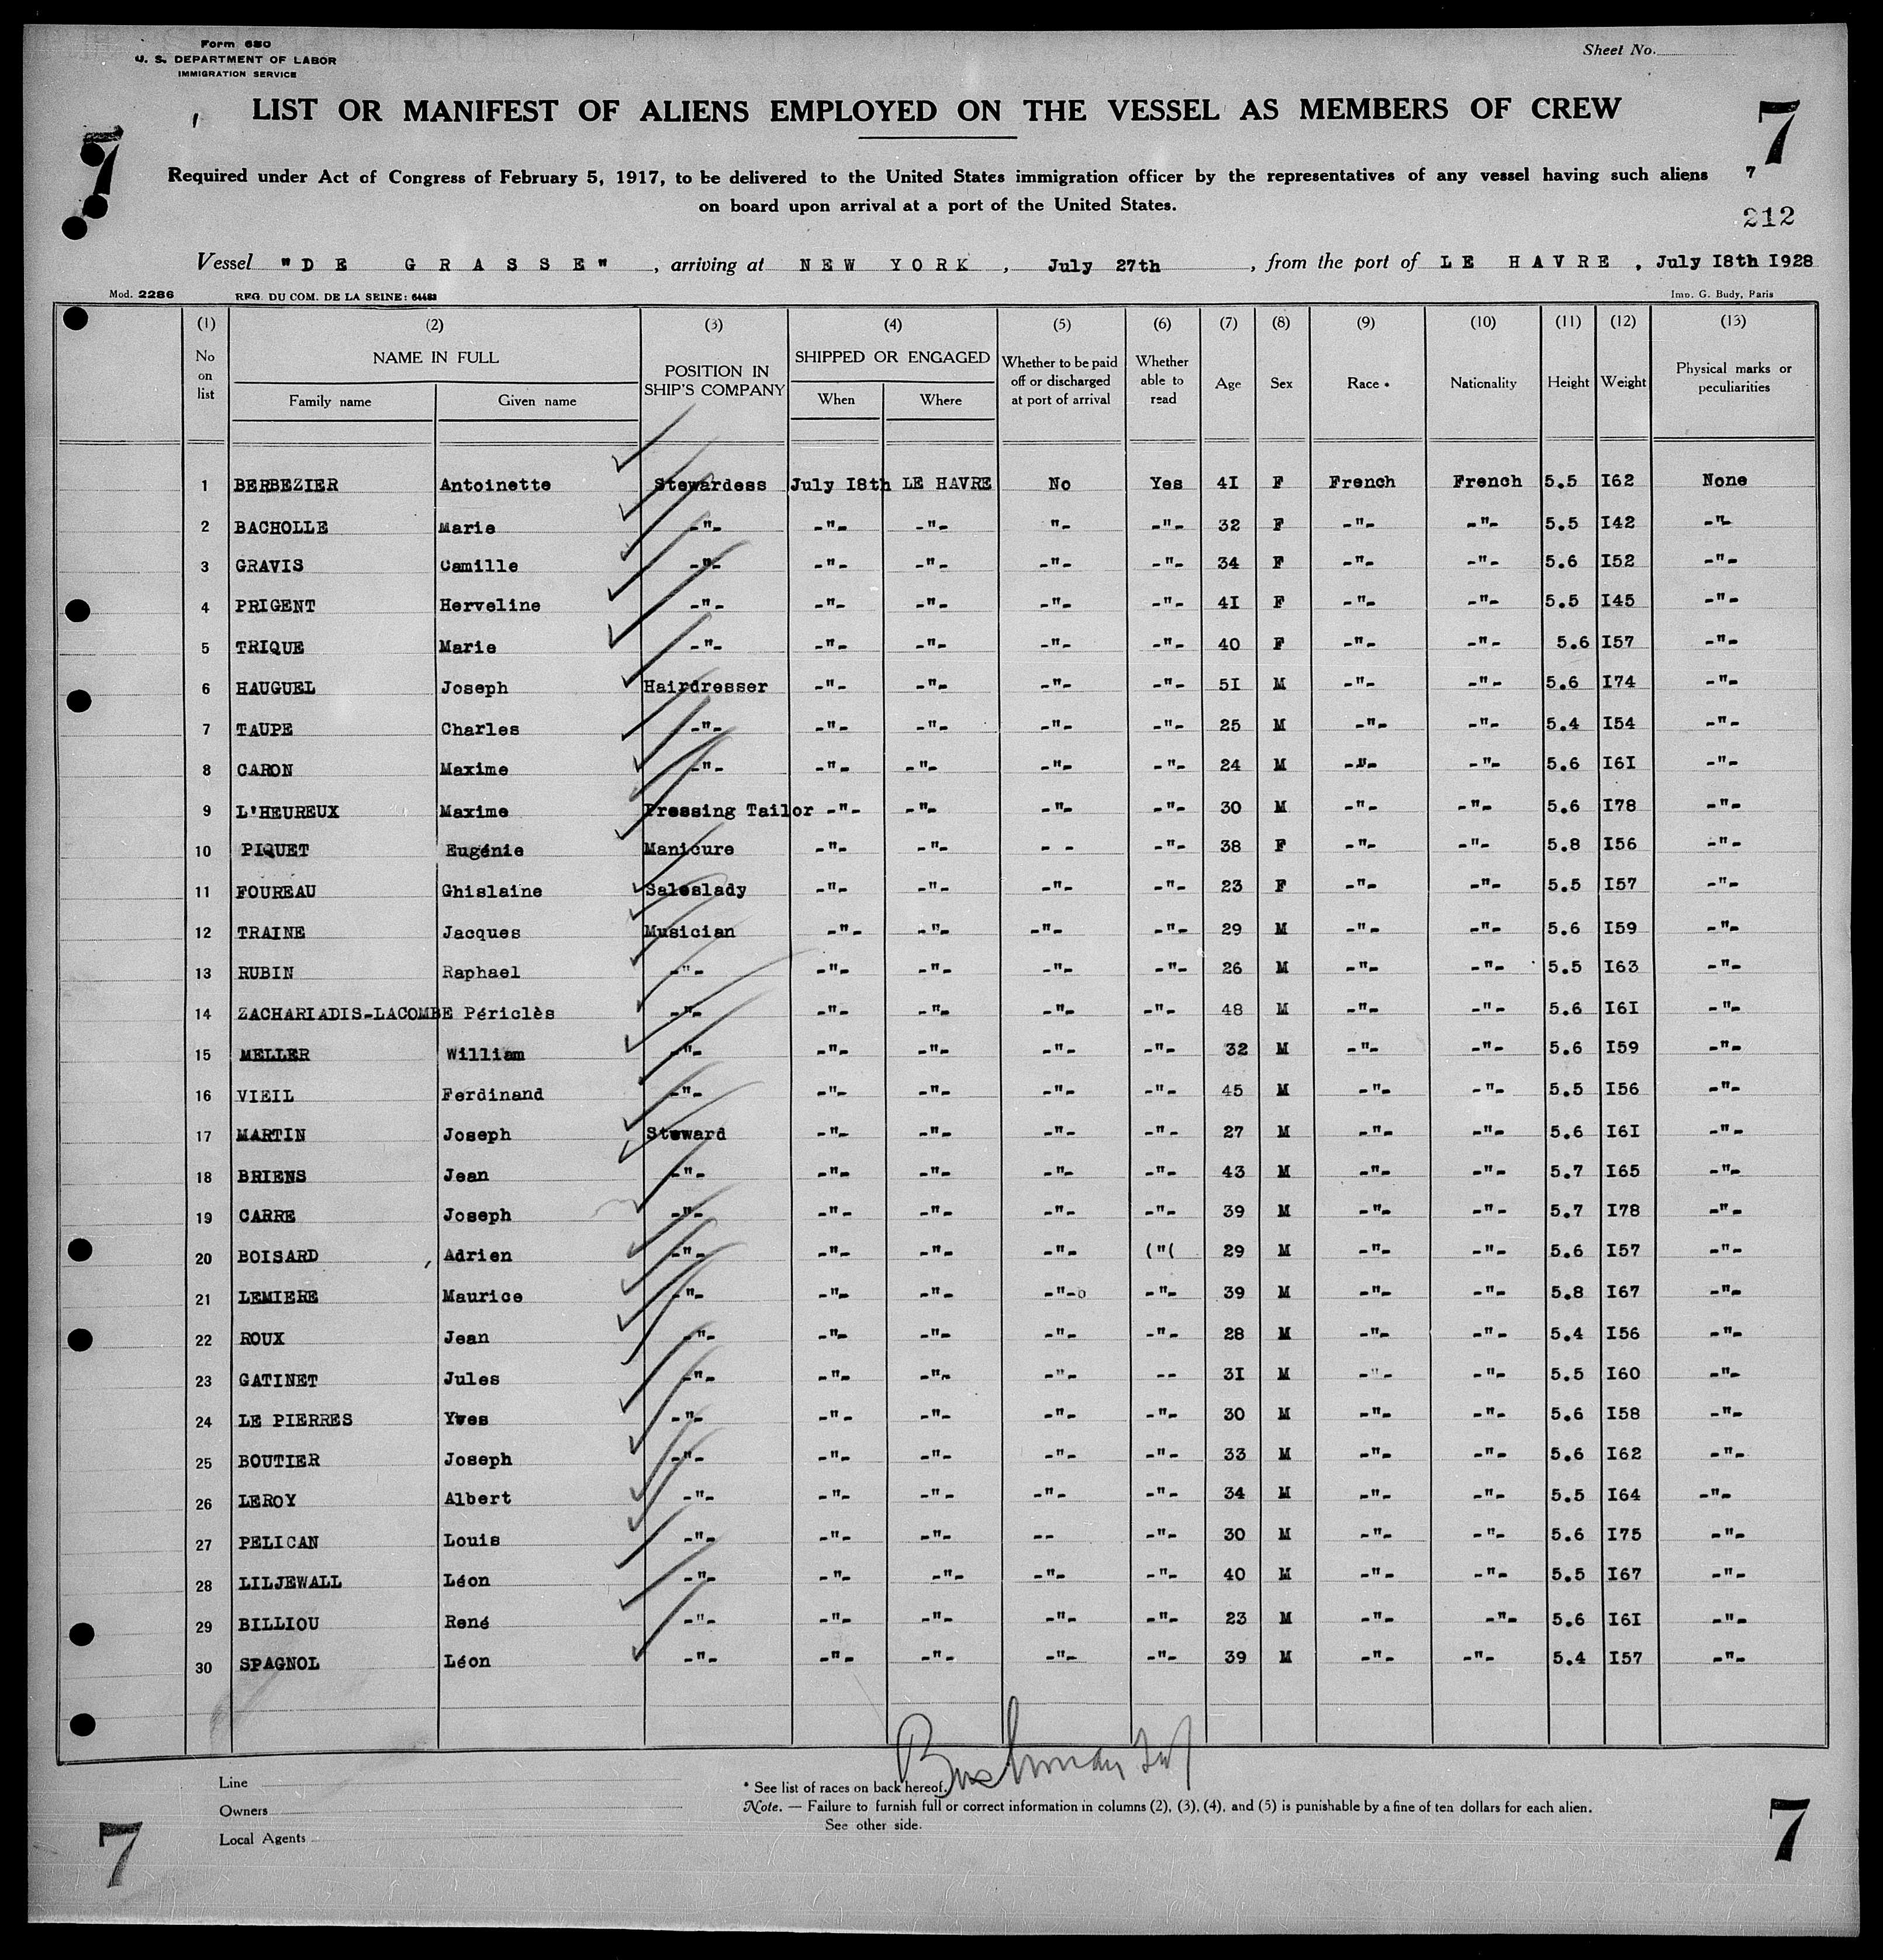 Form 680
U. S. DEPARTMENT OF LABOR
IMMIGRATION SERVICE
Sheet No.
LIST OR MANIFEST OF ALIENS EMPLOYED ON THE VESSEL AS MEMBERS OF CREW
7 7
Required under Act of Congress of February 5, 1917, to be delivered to the United States immigration officer by the representatives of any vessel having such aliens 7
on board upon arrival at a port of the United States.
212
Vessel "DE GRASSE", arriving at NEW YORK, July 27th, from the port of LE HAVRE, July I8th I928
Mod. 2286 REG. DU COM. DE LA SEINE: 64483 Imp. G. Budy, Paris
(1) (2) (3) (4) (5) (6) (7) (8) (9) (10) (11) (12) (13)
No on list NAME IN FULL Family name Given name POSITION IN SHIP'S COMPANY SHIPPED OR ENGAGED When Where Whether to be paid off or discharged at port of arrival Whether able to read Age Sex Race * Nationality Height Weight Physical marks or peculiarities
1 BERBEZIER Antoinette Stewardess July I8th LE HAVRE No Yes 4I F French French 5.5 I62 None
2 BACHOLLE Marie -"- -"- -"- "- -"- 32 F -"- -"- 5.5 I42 -"-
3 GRAVIS Camille -"- -"- -"- -"- -"- 34 F -"- -"- 5.6 I52 -"-
4 PRIGENT Herveline -"- -"- -"- -"- -"- 4I F -"- -"- 5.5 I45 -"-
5 TRIQUE Marie -"- -"- -"- -"- -"- 40 F -"- -"- 5.6 I57 -"-
6 HAUGUEL Joseph Hairdresser -"- -"- -"- -"- 5I M -"- -"- 5.6 I74 -"-
7 TAUPE Charles -"- -"- -"- -"- -"- 25 M -"- -"- 5.4 I54 -"-
8 CARON Maxime -"- -"- -"- -"- -"- 24 M -"- -"- 5.6 I6I -"-
9 L'HEUREUX Maxime Pressing Tailor -"- -"- -"- -"- 30 M -"- -"- 5.6 I78 -"-
10 PIQUET Eugénie Manicure -"- -"- - - -"- 38 F -"- -"- 5.8 I56 -"-
11 FOUREAU Ghislaine Saleslady -"- -"- -"- -"- 23 F -"- -"- 5.5 I57 -"-
12 TRAINE Jacques Musician -"- -"- -"- -"- 29 M -"- -"- 5.6 I59 -"-
13 RUBIN Raphael -"- -"- -"- -"- -"- 26 M -"- -"- 5.5 I63 -"-
14 ZACHARIADIS-LACOMBE Périclès -"- -"- -"- -"- -"- 48 M -"- -"- 5.6 I6I -"-
15 MELLER William -"- -"- -"- -"- -"- 32 M -"- -"- 5.6 I59 -"-
16 VIEIL Ferdinand -"- -"- -"- -"- -"- 45 M -"- -"- 5.5 I56 -"-
17 MARTIN Joseph Steward -"- -"- -"- -"- 27 M -"- -"- 5.6 I6I -"-
18 BRIENS Jean -"- -"- -"- -"- -"- 43 M -"- -"- 5.7 I65 -"-
19 CARRE Joseph -"- -"- -"- -"- -"- 39 M -"- -"- 5.7 I78 -"-
20 BOISARD , Adrien -"- -"- -"- -"- ("( 29 M -"- -"- 5.6 I57 -"-
21 LEMIERE Maurice -"- -"- -"- -"-o -"- 39 M -"- -"- 5.8 I67 -"-
22 ROUX Jean -"- -"- -"- -"- -"- 28 M -"- -"- 5.4 I56 -"-
23 GATINET Jules -"- -"- -"- -"- -- 3I M -"- -"- 5.5 I60 -"-
24 LE PIERRES Yves -"- -"- -"- -"- -"- 30 M -"- -"- 5.6 I58 -"-
25 BOUTIER Joseph -"- -"- -"- -"- -"- 33 M -"- -"- 5.6 I62 -"-
26 LEROY Albert -"- -"- -"- -"- -"- 34 M -"- -"- 5.5 I64 -"-
27 PELICAN Louis -"- -"- -"- -- -"- 30 M -"- -"- 5.6 I75 -"-
28 LILJEWALL Léon -"- -"- -"- -"- -"- 40 M -"- -"- 5.5 I67 -"-
29 BILLIOU René -"- -"- -"- -"- -"- 23 M -"- -"- 5.6 I6I -"-
30 SPAGNOL Léon -"- -"- -"- -"- -"- 39 M -"- -"- 5.4 I57 -"-
Line
* See list of races on back hereof.
Owners
Note. — Failure to furnish full or correct information in columns (2), (3), (4), and (5) is punishable by a fine of ten dollars for each alien.
See other side.
Local Agents
7 7